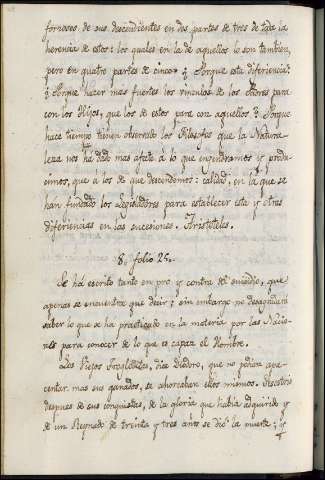 forzosos de sus descendientes en dos partes de tres de toda la
herencia de estos: los quales en la de aquellos lo son tambien,
pero en quatro partes de cinco. y Porque esta diferiencia?
Porque hacer mas fuertes los vinculos de los Padres para
con los Hijos, que los de estos para con aquellos? Porque
hace tiempo tienen observado los Filosofos que la Natura-
leza nos há dado mas afecto á lo que engendramos y produ-
cimos, que á los de que descendemos: calidad, en la que se
han fundado los Legisladores para establecer esta y otras
diferiencias en las sucesiones. Aristoteles.
8, folio 25.
Se há escrito tanto en pro y contra del suicidio, que
apenas se encuentra que decir; sin embargo no desagradará
saber lo que se ha practicado en la materia por las Nacio-
nes para conocer de lo que es capaz el Hombre.
Los Viejos Trogloditas, dice Diodoro, que no podian apa-
centar mas sus ganados, se ahorcaban ellos mismos. Sesostris
despues de sus conquistas, de la gloria que habia adquirido y
de un Reynado de treinta y tres años se dió la muerte; y